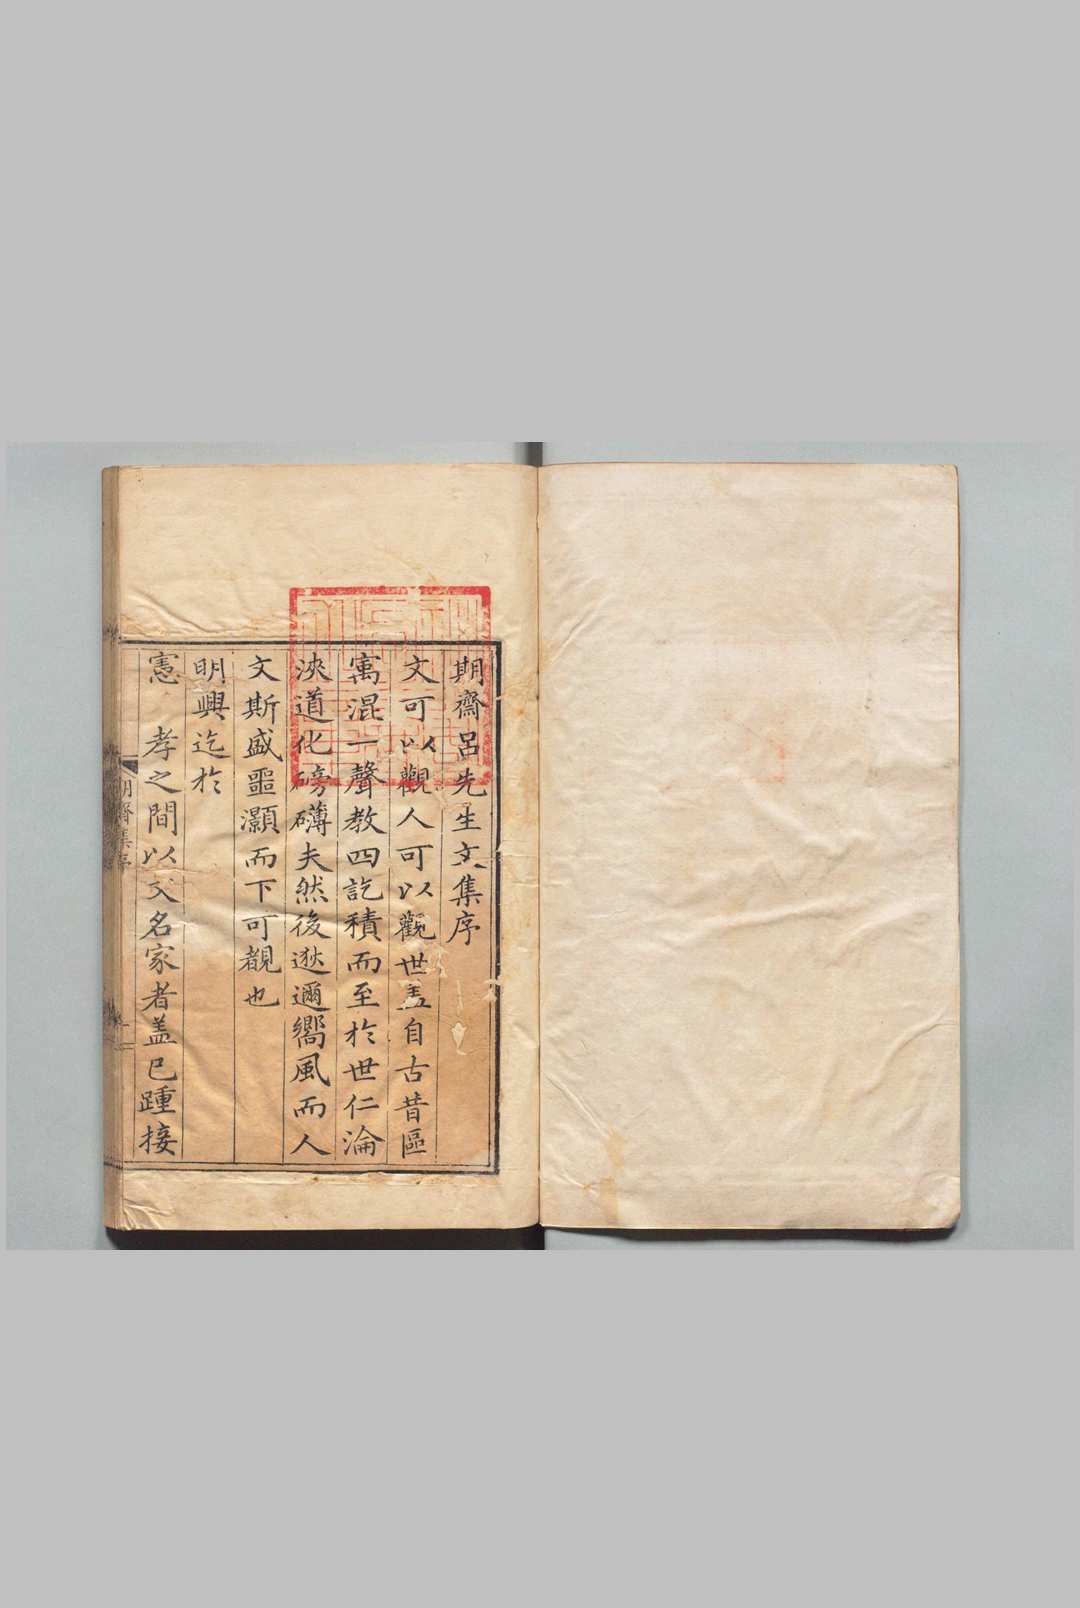 期齋呂先生文集序
文可以觀人可以觀世盖自古昔區
寓混一聲教四訖積而至於世仁淪
浹道化磅礴夫然後逖邇嚮風而人
文斯盛噩灝而下可覩也
明興迄於
憲　孝之間以文名家者盖已踵接
期齋集序